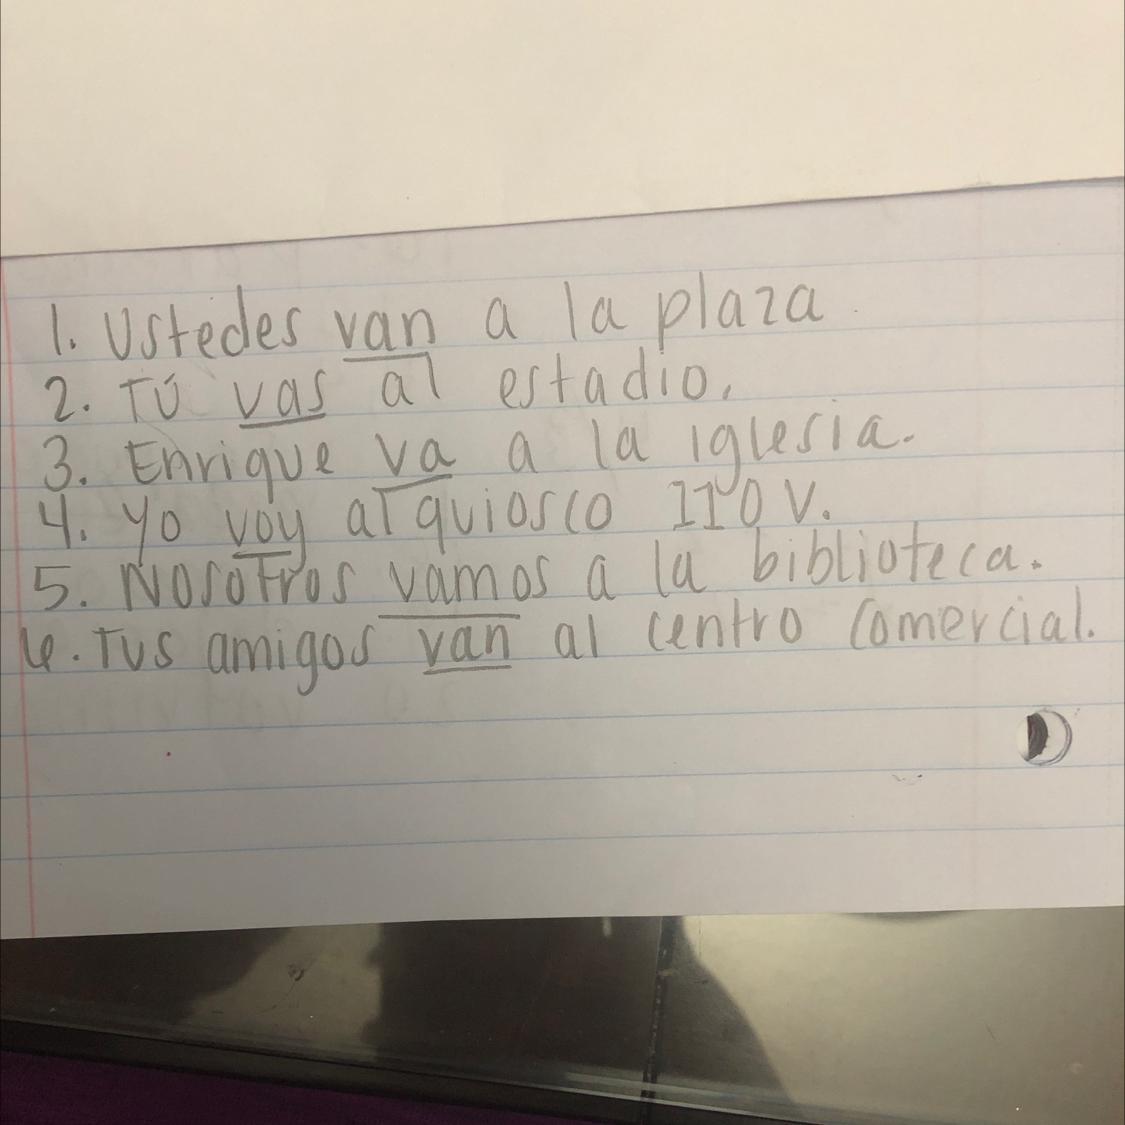 1. Ustedes van a la plaza.
2. Tú vas al estadio.
3. Enrique va a la iglesia.
4. Yo voy al quiosco 110 V.
5. Nosotros vamos a la biblioteca.
6. Tus amigos van al centro comercial.